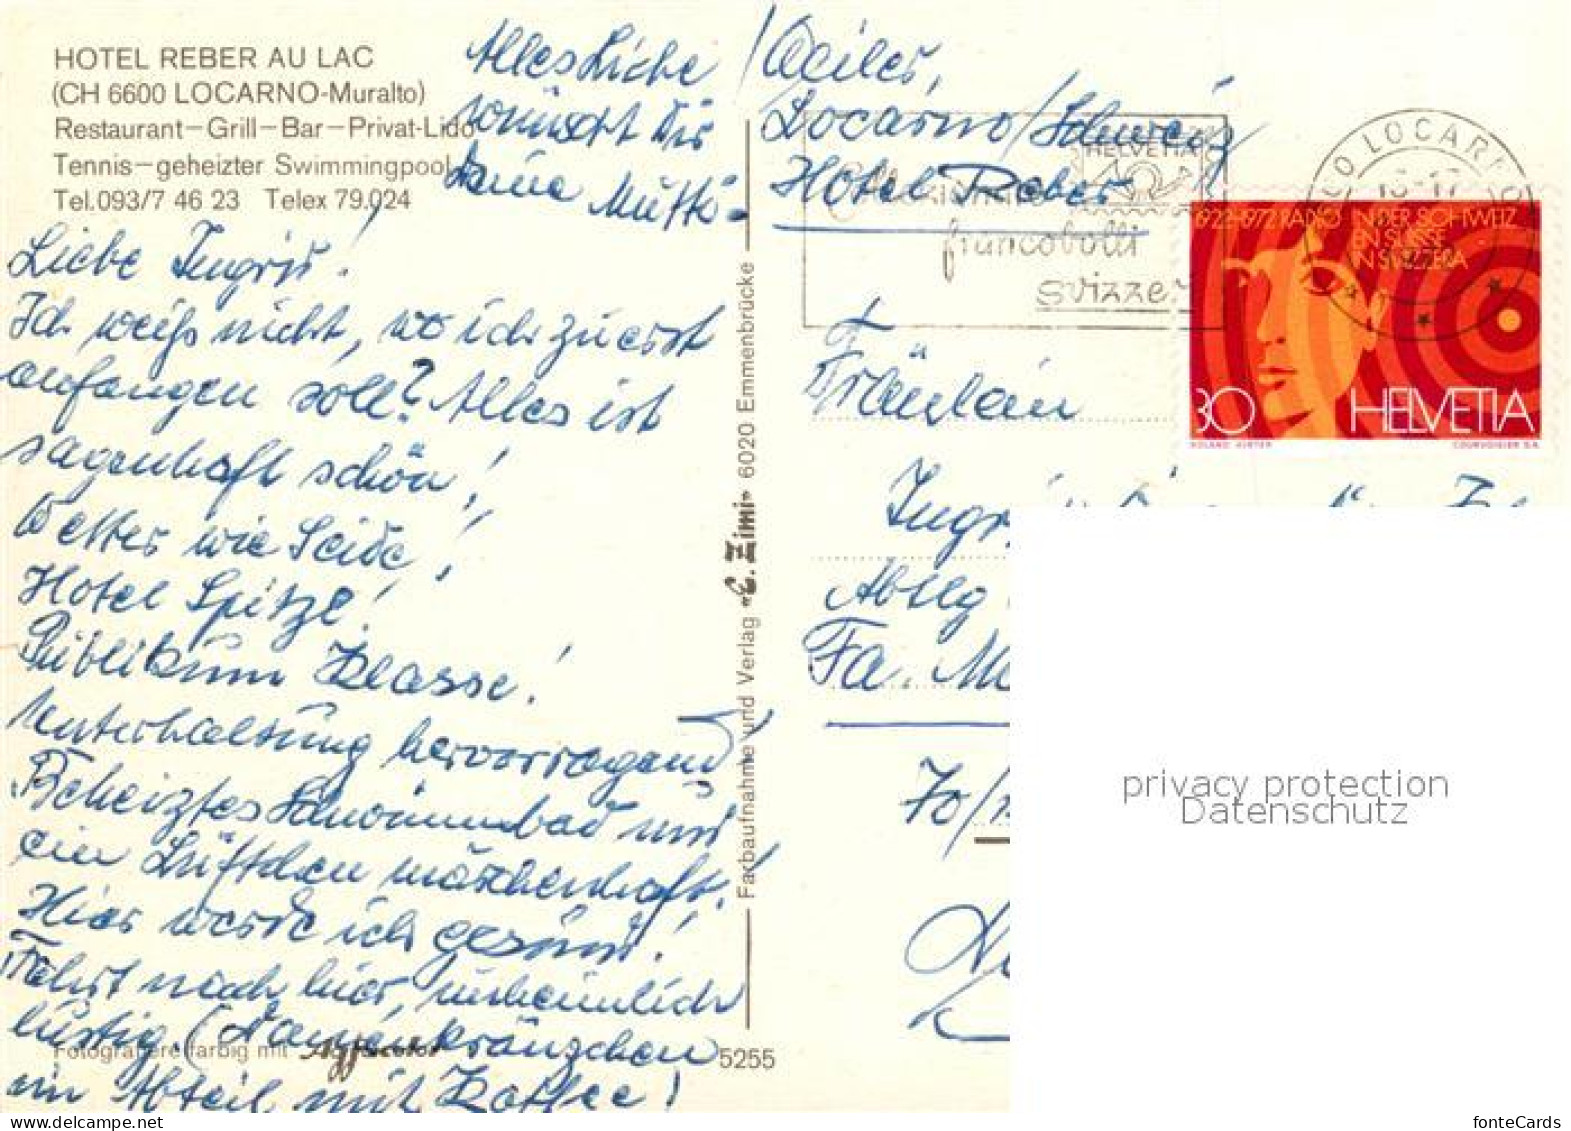 HOTEL REBER AU LAC
(CH 6600 LOCARNO-Muralto)
Restaurant-Grill-Bar-Privat-Lido
Tennis-geheizter Swimmingpool
Tel.093/7 46 23 Telex 79.024
Alles Liebe
wünscht Dir
Deine Mutti-
Liebe Ingrid!
Ich weiß nicht, wo ich zuerst
anfangen soll? Alles ist
sagenhaft schön!
Wetter wie Seide!
Hotel Spitze!
Publikum Klasse!
Unterhaltung hervorragend
Beheiztes Schwimmbad und
ein Lüftchen märchenhaft!
Hier werde ich gesund!
Fahrt nach hier, unheimlich
lustig. (Kränzchen
im Abteil mit Kaffee!
Fotografiere farbig mit Agfacolor
5255
Farbaufnahme und Verlag «E. Zimi» 6020 Emmenbrücke
Locarno/Schweiz
Hotel Reber
HELVETIA
francobolli
svizzeri
LOCARNO
1922-1972 RADIO IN DER SCHWEIZ
EN SUISSE
IN SVIZZERA
30 HELVETIA
ROLAND HIRTER COURVOISIER S.A.
Fräulein
Abtlg
Fa.
privacy protection
Datenschutz
fonteCards